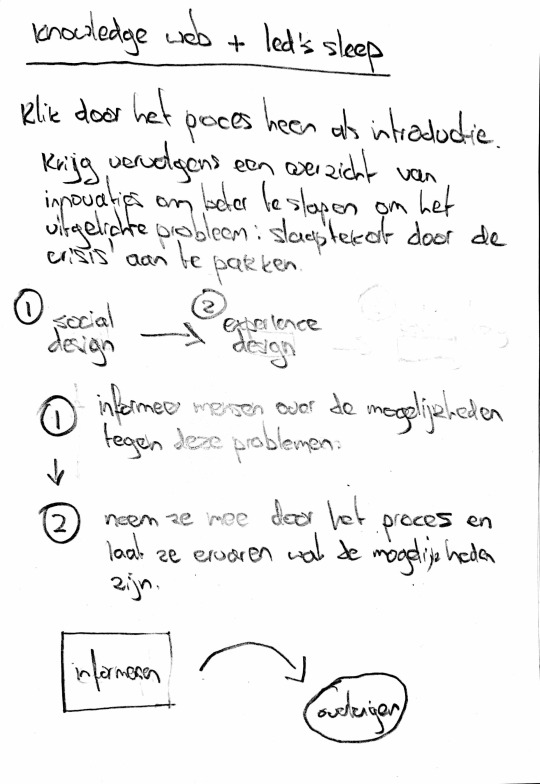 knowledge web + led's sleep
Klik door het proces heen als introductie.
Krijg vervolgens een overzicht van
innovaties om beter te slapen om het
uitgelichte probleem: 'slaaptekort door de
crisis' aan te pakken.
① social ② experience
design → design
① informeer mensen over de mogelijkheden
tegen deze problemen.
↓
② neem ze mee door het proces en
laat ze ervaren wat de mogelijkheden
zijn.
informeren